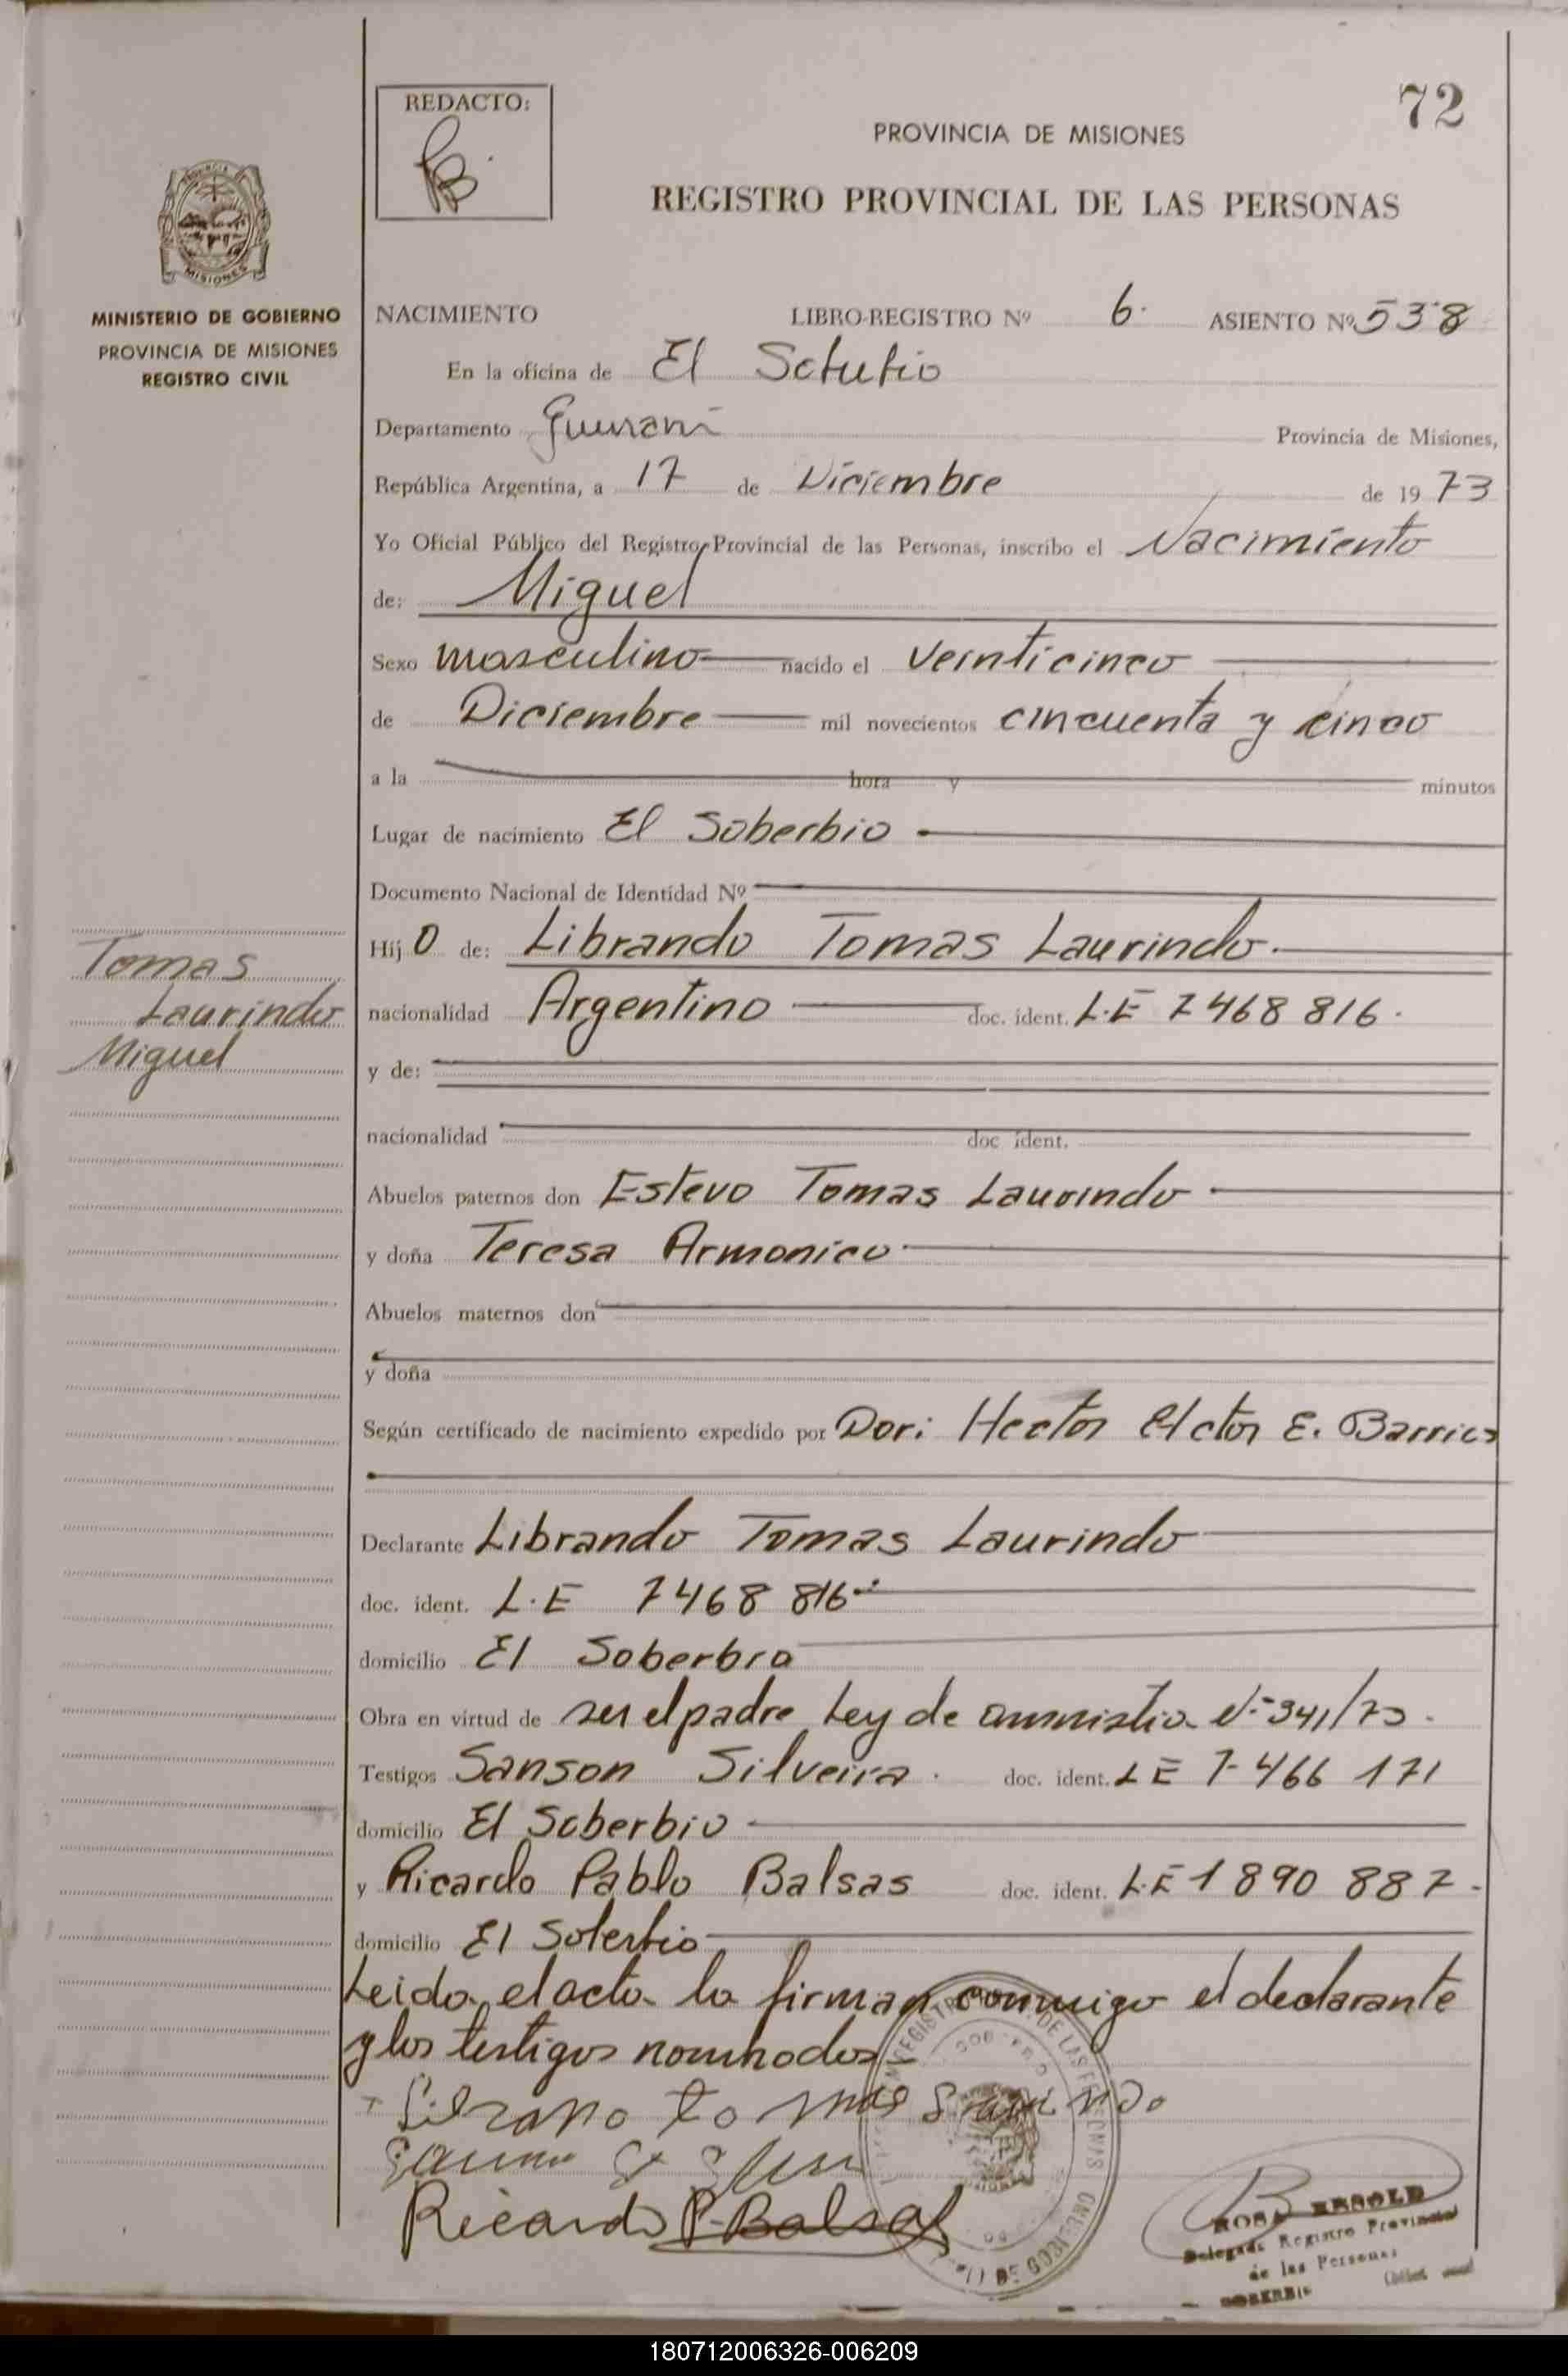 72
REDACTO:
PROVINCIA DE MISIONES
REGISTRO PROVINCIAL DE LAS PERSONAS
MISIONES
MINISTERIO DE GOBIERNO
PROVINCIA DE MISIONES
REGISTRO CIVIL
NACIMIENTO LIBRO-REGISTRO Nº 6. ASIENTO Nº 538
En la oficina de El
Departamento Guarani Provincia de Misiones,
República Argentina, a 17 de Diciembre de 1973
Yo Oficial Público del Registro Provincial de las Personas, inscribo el Nacimiento
de: Miguel
Sexo masculino nacido el veinticinco
de Diciembre mil novecientos cincuenta y cinco
a la hora y minutos
Lugar de nacimiento El Soberbio
Documento Nacional de Identidad Nº
Hij o de: Librando Tomas Laurindo.
nacionalidad Argentino doc. ident. L.E 7468 816.
y de:
nacionalidad doc ident.
Abuelos paternos don Estevo Tomas Laurindo
y doña Teresa Armonico
Abuelos maternos don
y doña
Según certificado de nacimiento expedido por Dor: Hector E.
Declarante Librando Tomas Laurindo
doc. ident. L.E 7468 816
domicilio El Soberbio
Obra en virtud de ser el padre Ley de amnistia Nº 341/73.
Testigos Sanson Silveira. doc. ident. LE 7.466 171
domicilio El Soberbio
y Ricardo Pablo Balsas doc. ident. L.E 1890 887.
domicilio El Soberbio
Leida el acta la firman conmigo el declarante
y los testigos nombrados
Ricardo P. Balsas
Tomas
Laurindo
Miguel
ROSA BERSOLD
Delegada Registro Provincial
de las Personas
SOBERBIO
180712006326-006209